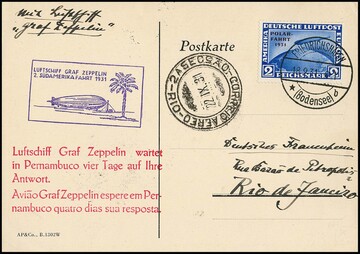 Mit Luftschiff
„Graf Zeppelin"
Postkarte
LUFTSCHIFF GRAF ZEPPELIN
2. SÜDAMERIKAFAHRT 1931
2A SECSÃO - CORREIO AEREO - D.R.
22 IX 31
DEUTSCHE LUFTPOST
EUROPA
AMERIKA
POLAR-
FAHRT
1931
2 REICHSMARK 2
FRIEDRICHSHAFEN
(Bodensee)
Luftschiff Graf Zeppelin wartet
in Pernambuco vier Tage auf Ihre
Antwort.
Avião Graf Zeppelin espere em Per-
nambuco quatro dias sua resposta.
Deutsches Frauenheim
Rua Barão de Petropolis
Rio de Janeiro
AP&Co., B.1202W